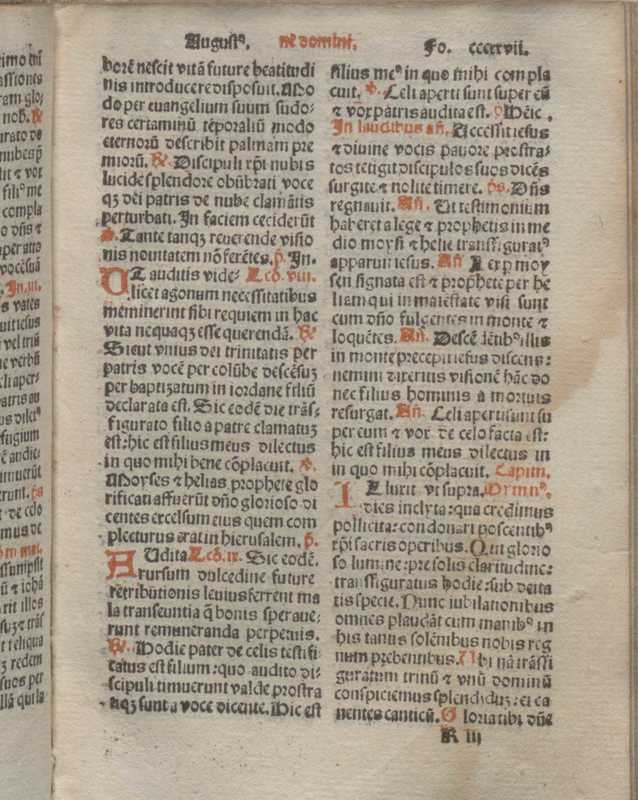 timo dn̄i
assiones
ram glo-
nob. ꝶ
urato do
nubes p̄
lit ⁊ vox
filiꝰ me
compla
o dn̄s ⁊
operatio
vocesuā
In.iii.
s vates
uit iesus
vel triū
ne verbū
celi aper-
patris au
us dilecꝰ
efugium
ē audie:
imuerūt
erunt. p̄s
t de celo
mus de
m mai.
ssumpsit
ū ⁊ iohā
rit illos
suꝫ ⁊ trās
t reliqua
ꝫ redem
suos per
llā qui la
Augustꝰ. nē domini. Fo. ccccxvii.
borē nescit vitā future beatitudi
nis introducere disposuit. Mo
do per euangelium suum sudo-
res certaminū tēporaliū modo
eternorū describit palmam pre
miorū. ꝶ Discipuli xp̄i nubis
lucide splendore obūbrati voce
qꝫ dei patris de nube clamātis
perturbati. In faciem ceciderūt
Tante tanqꝫ reuerende visio
nis nouitatem nō ferētes. p̄. In.
UT auditis vide- Lcō.viii.
licet agonum necessitatibus
meminerint sibi requiem in hac
vita nequaqꝫ esse querendā. ꝶ
Sicut vnius dei trinitatis per
patris vocē per colūbe descēsuꝫ
per baptizatum in iordane filiū
declarata est. Sic eodē die trās-
figurato filio a patre clamatuꝫ
est: hic est filius meus dilectus
in quo mihi bene cōplacuit. ꝟ.
Moyses ⁊ helias prophete glo
rificati affuerūt dn̄o glorioso di
centes excelsum eius quem com
plecturus erat in hierusalem. p̄.
AUdita Lcō.ix. Sic eodē.
rursum dulcedine future
retributionis leuius ferrent ma
la transeuntia q̄ bonis speraue-
runt remuneranda perpetuis.
ꝶ. Hodie pater de celis testifi
catus est filium: quo audito di-
scipuli timuerunt valde prostra
tiqꝫ sunt a voce dicente. Hic est
filius meꝰ in quo mihi compla
cuit. ꝟ. Celi aperti sunt super eū
⁊ vox patris audita est. p̄ Hic.
In laudibus añ. Accessit iesus
⁊ diuine vocis pauore prostra-
tos tetigit discipulos suos dicēs
surgite ⁊ nolite timere. p̄s. Dn̄s
regnauit. Añ. Ut testimonium
haberet a lege ⁊ prophetis in me
dio moysi ⁊ helie transfiguratꝰ
apparuit iesus. Añ Lex p̄ moy
sen signata est ⁊ prophete per he
liam qui in maiestate visi sunt
cum dn̄o fulgentes in monte ⁊
loquētes. Añ. Descēdētibꝰ illis
in monte precepit iesus discens:
nemini dixeritis visionē hāc do
nec filius hominis a mortuis
resurgat. Añ. Celi aperti sunt su
per eum ⁊ vox de celo facta est:
hic est filius meus dilectus in
in quo mihi cōplacuit. Capitu.
Illuxit vt supra. Hymnꝰ.
dies inclyta: qua credimus
pollicita: condonari poscentibꝰ
xp̄i sacris operibus. Qui glorio
so lumine: pre solis claritudine:
transfiguratus hodie: sub deita
tis specie. Nunc iubilationibus
omnes plaudāt cum manibꝰ in
his tanus solēnibus nobis reg
num prebentibus. Ubi nā trāsfi
guratum trinū ⁊ vnū dominū
conspiciemus splendiduꝫ: ei ca
nentes canticū. Gloria tibi dn̄e
R iii